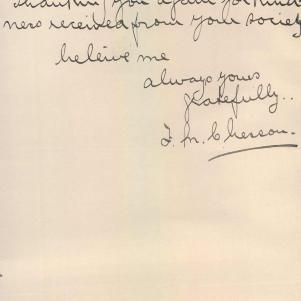 thanking you again for kind
ness received from your society
beleive me
always yours
gratefully..
F. M. C